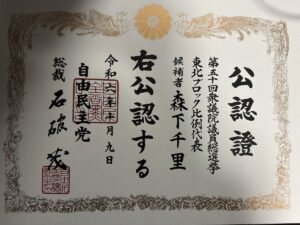 公認證
第五十回衆議院議員総選挙
東北ブロック比例代表
候補者 森下千里
右公認する
令和六年十月九日
自由民主党
総裁 石破茂